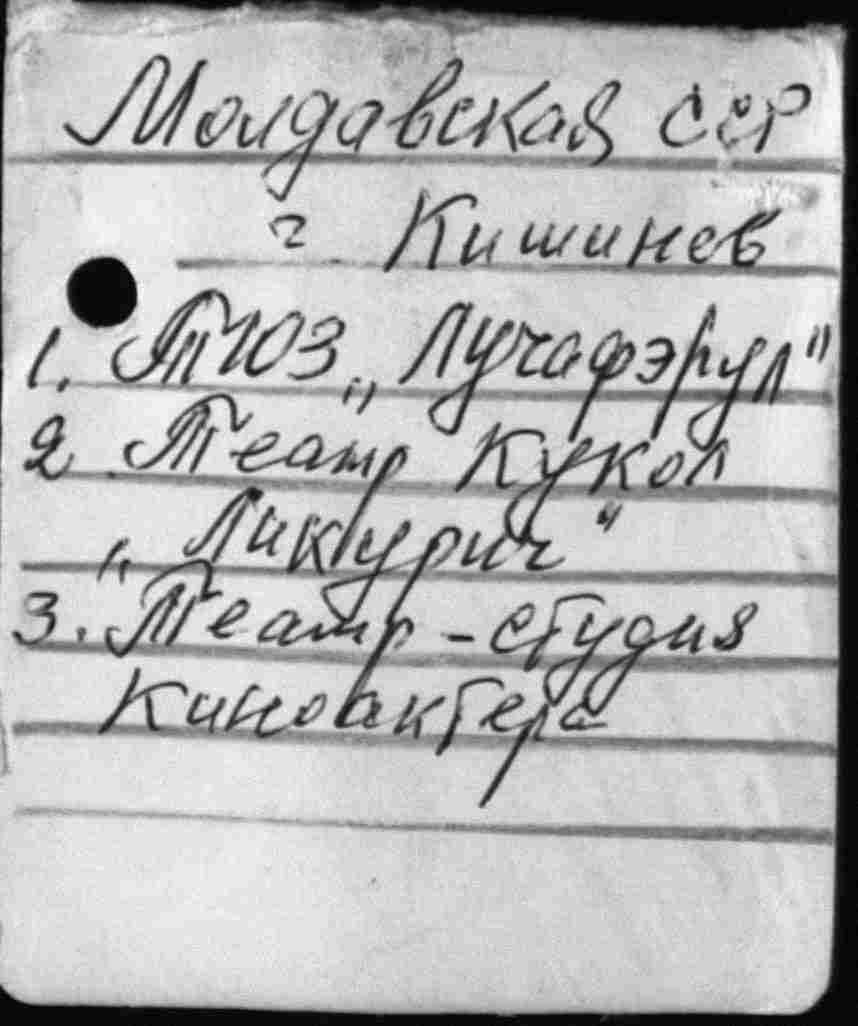 Молдавская ССР
г Кишинев
1. ТЮЗ „Лучафэрул"
2 Театр Кукол
„Ликурич"
3. Театр-студия
Киноактера